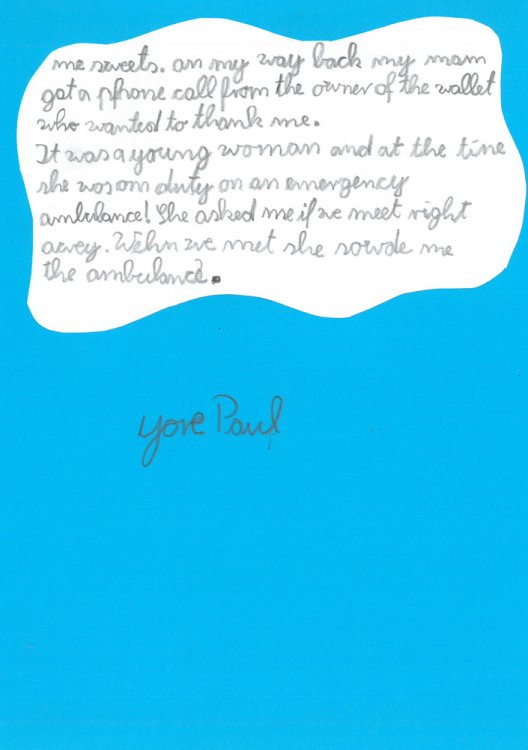 me sweets. on my way back my mom
got a phone call from the owner of the wallet
who wanted to thank me.
It was a young woman and at the time
she was om duty on an emergency
ambulance! She asked me if we meet right
awey. Wehn we met she sowde me
the ambulance.
yore Paul